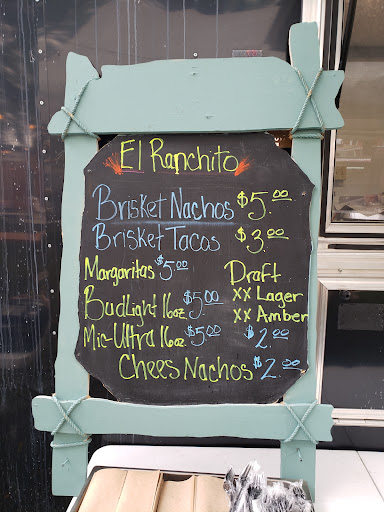 El Ranchito
Brisket Nachos $5.00
Brisket Tacos $3.00
Margaritas $5.00
Draft
BudLight 16oz. $5.00
XX Lager
XX Amber
Mic-Ultra 16oz. $5.00
$2.00
Chees Nachos $2.00